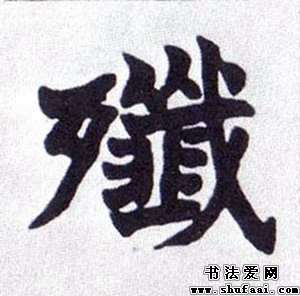 殲
书法爱网
www.shufaai.com